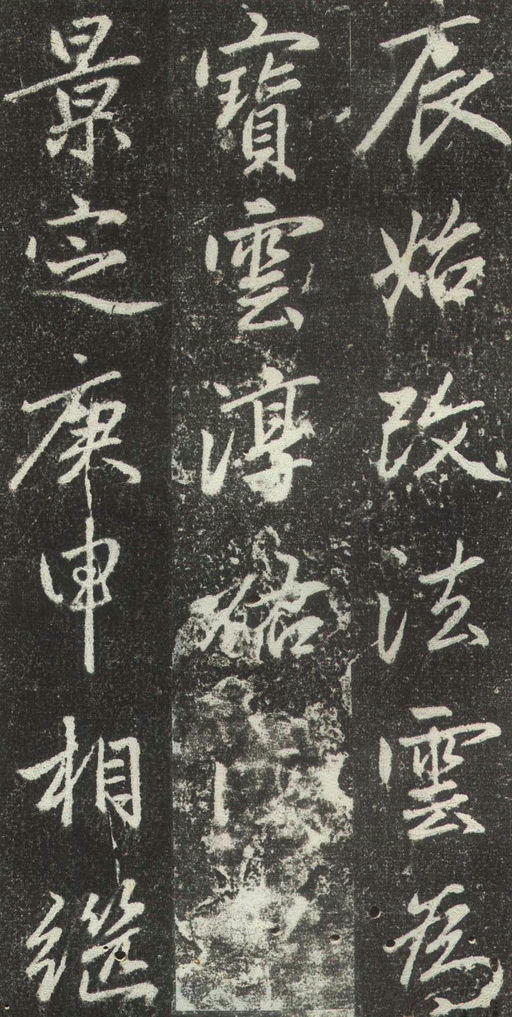 辰始改法雲為
寶雲淳祐
景定庚申相繼